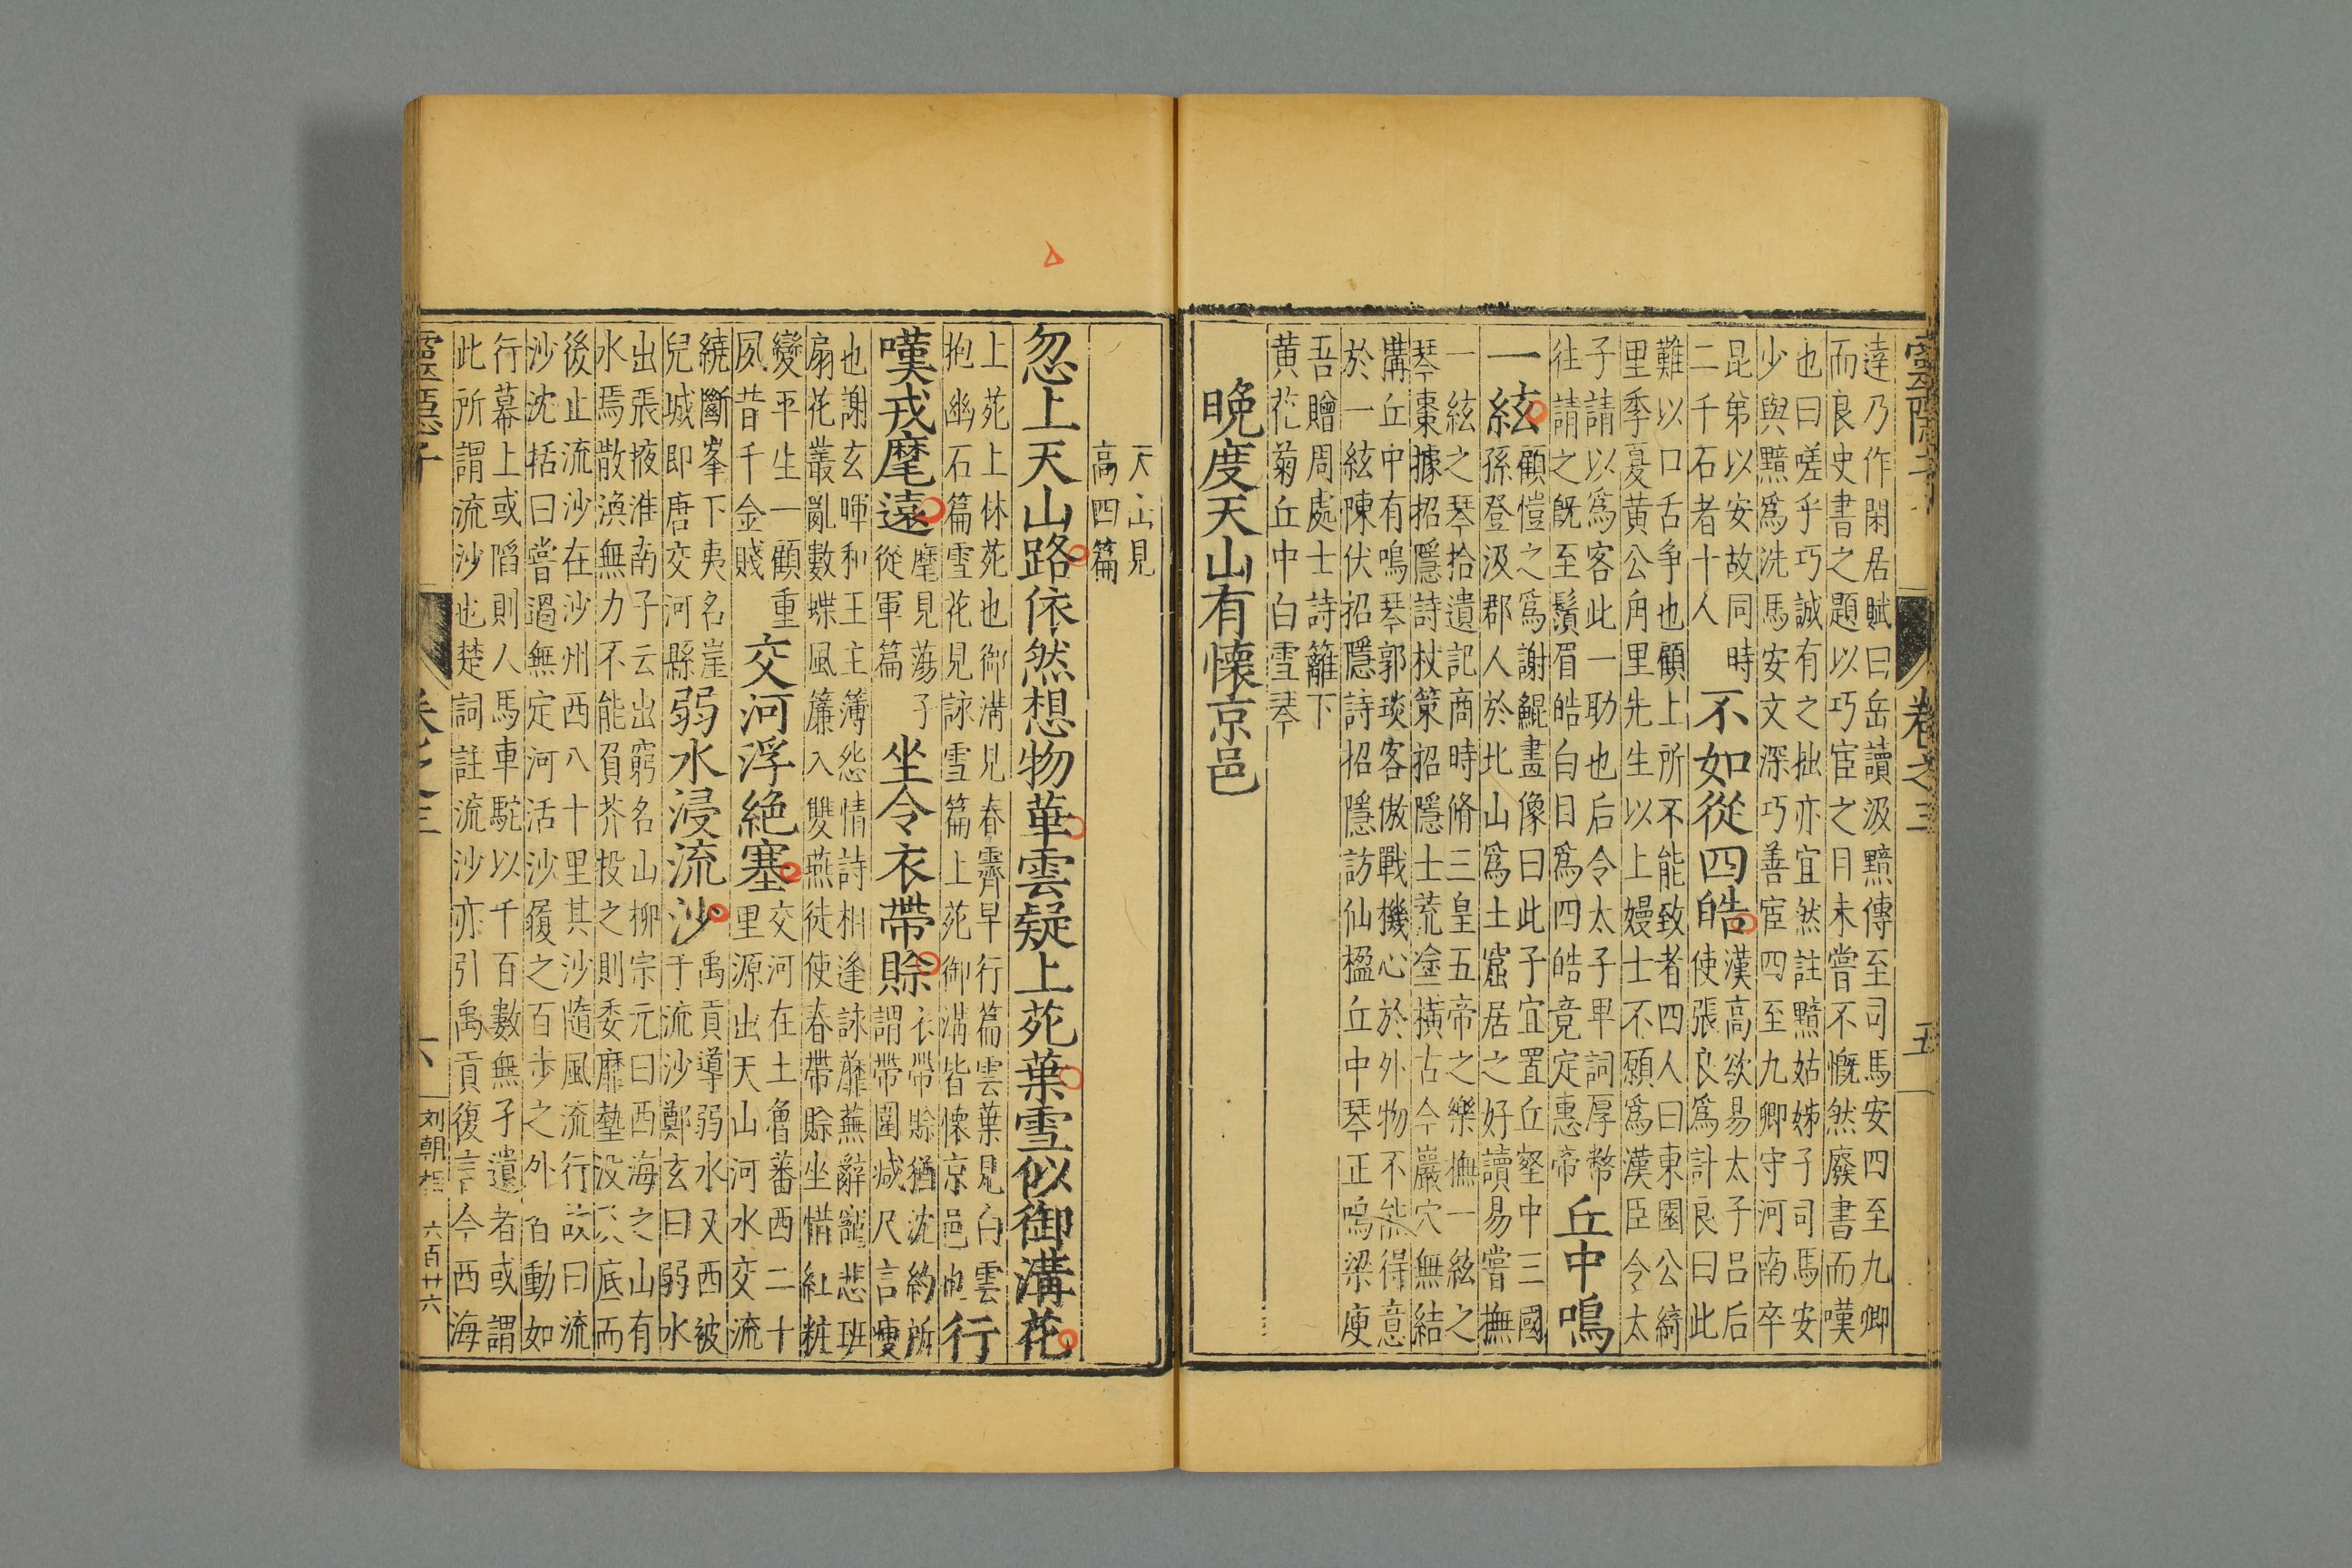 靈隱子
卷之三
五
逹乃作閑居賦曰岳讀汲黯傳至司馬安四至九卿
而良史書之題以巧宦之目未嘗不慨然廢書而嘆
也曰嗟乎巧誠有之拙亦宜然註黯姑姊子司馬安
少與黯爲洗馬安文深巧善宦四至九卿守河南卒
昆弟以安故同時
二千石者十人
不如從四皓
漢高欲易太子呂后
使張良爲計良曰此
難以口舌争也顧上所不能致者四人曰東園公綺
里季夏黄公甪里先生以上嫚士不願爲漢臣令太
子請以爲客此一助也后令太子卑詞厚幣
往請之旣至鬚眉皓白目爲四皓竟定惠帝
丘中鳴
一絃
顧愷之爲謝鯤畫像曰此子宜置丘壑中三國
孫登汲郡人於北山爲土窟居之好讀易嘗撫
一絃之琴拾遺記商時脩三皇五帝之樂撫一絃之
琴棗據招隱詩杖策招隱士荒塗橫古今巖穴無結
溝丘中有鳴琴郭琰客傲戰機心於外物不能得意
於一絃陳伏招隱詩招隱訪仙楹丘中琴正鳴梁庾
吾贈周處士詩籬下
黄花菊丘中白雪琴
晚度天山有懷京邑
天山見
高四篇
忽上天山路依然想物華雲疑上苑葉雪似御溝花
上苑上林苑也御溝見春霽早行篇雲葉見白雲
抱幽石篇雪花見詠雪篇上苑御溝皆懷京邑也
行
嘆戎麾遠
麾見蕩子
從軍篇
坐令衣帶賒
衣帶賒猶沈約所
謂帶圍减尺言瘦
也謝玄暉和王主簿怨情詩相逢詠蘼蕪辭寵悲班
扇花叢亂數蝶風簾入雙燕徒使春帶賒坐惜紅粧
變平生一顧重
夙昔千金賤
交河浮絶塞
交河在土魯蕃西二十
里源出天山河水交流
繞斷峯下夷名崖
兒城即唐交河縣
弱水浸流沙
禹貢導弱水又西被
于流沙鄭玄曰弱水
出張掖淮南子云出窮名山柳宗元曰西海之山有
水焉散渙無力不能負芥投之則委靡墊没及底而
後止流沙在沙州西八十里其沙隨風流行故曰流
沙沈括曰嘗過無定河活沙履之百步之外皆動如
行幕上或䧟則人馬車駝以千百數無孑遺者或謂
此所謂流沙也楚詞註流沙亦引禹貢復言今西海
靈隱子
卷之三
六
刘朝
六百廿六